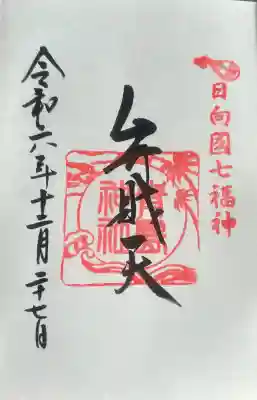 日向國七福神
弁財天
令和六年十二月二十七日